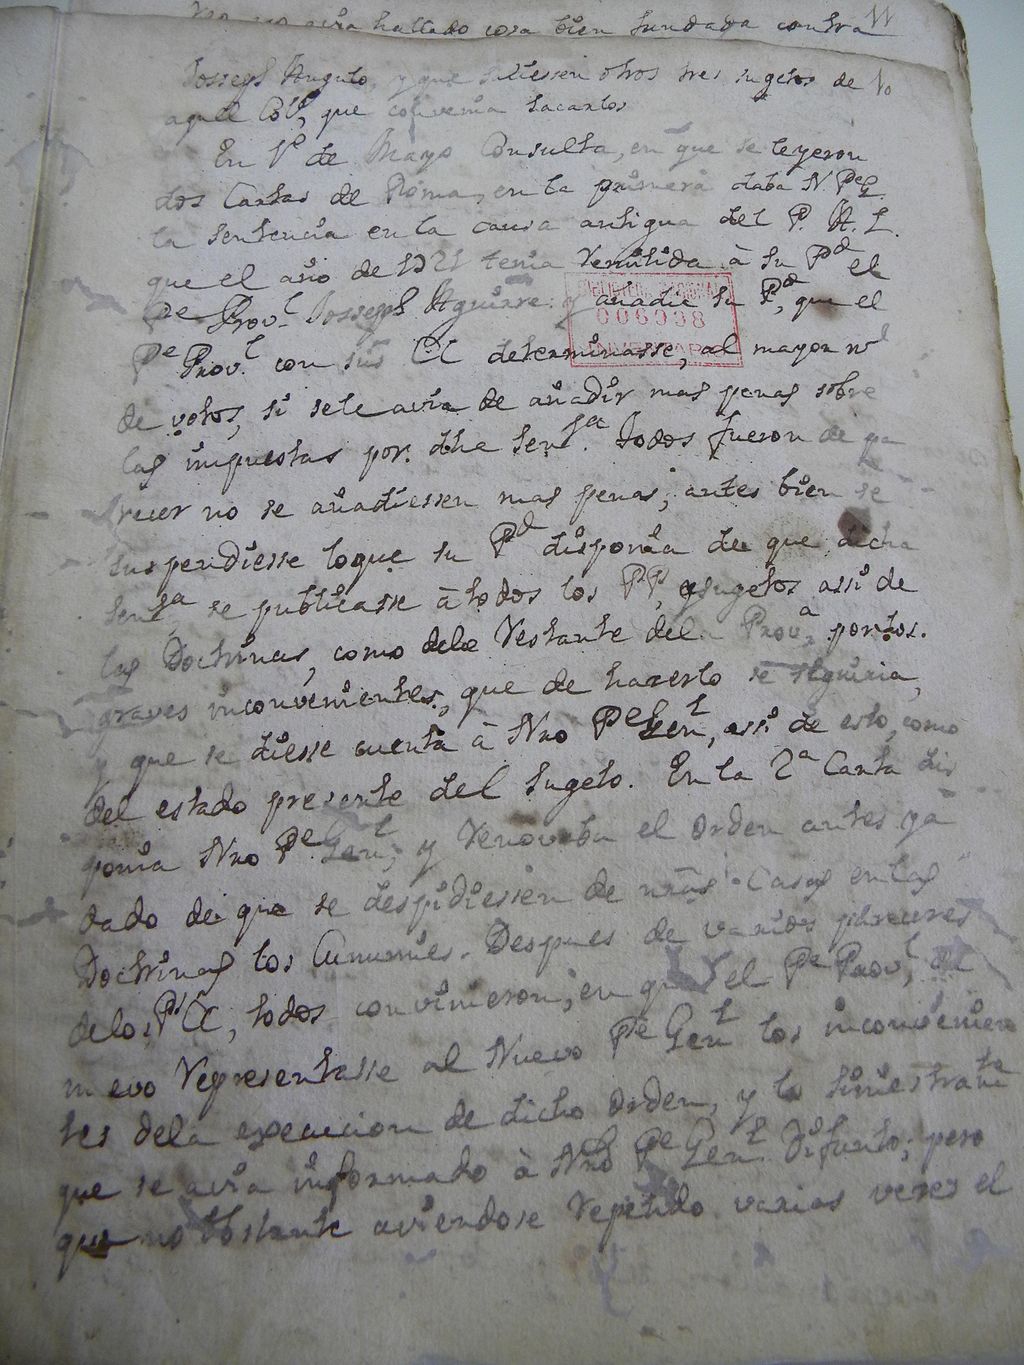 No no avia hallado cosa bien fundada contra
Josseph Angulo, y que saliessen otros tres sugetos de
aquel Col.º, que convenia sacarlos
En 1º de Mayo Consulta, en que se leyeron
dos Cartas de Roma, en la primera daba N. Pe G.
la sentencia en la causa antigua del P. A. L.
que el año de 1721 tenia remitida à su Pd el
Pe Provl Josseph Aguirre: y añadie su Pd, que el
BIBLIOTECA NACIONAL
006998
Pe Provl con sus CC determinasse, al mayor nº
de votos, si sele avia de añadir mas penas sobre
las impuestas por dha senta. Todos fueron de pa
recer no se añadiessen mas penas; antes bien se
suspendiesse loque su Pd disponia de que dicha
senta se publicasse à todos los PP, y sugetos assi de
las Doctrinas, como dela restante del Prova, por los
graves inconvenientes, que de hazerlo se seguiria,
y que se diesse cuenta à Nro Pe Genl, assi de esto, como
del estado presente del sugeto. En la 2ª Carta dis
ponia Nro Pe Genl, y renovaba el orden antes ya
dado de que se despidiessen de nras Casas en las
Doctrinas los Cunumies. Despues de varios pareceres
delos PP CC, todos convinieron, en que el Pe Provl de
nuevo representasse al Nuevo Pe Genl los inconvenien
tes dela execucion de dicho orden, y lo siniestramte
que se avia informado à Nro Pe Genl Difunto; pero
que no obstante aviendose repetido varias veces el